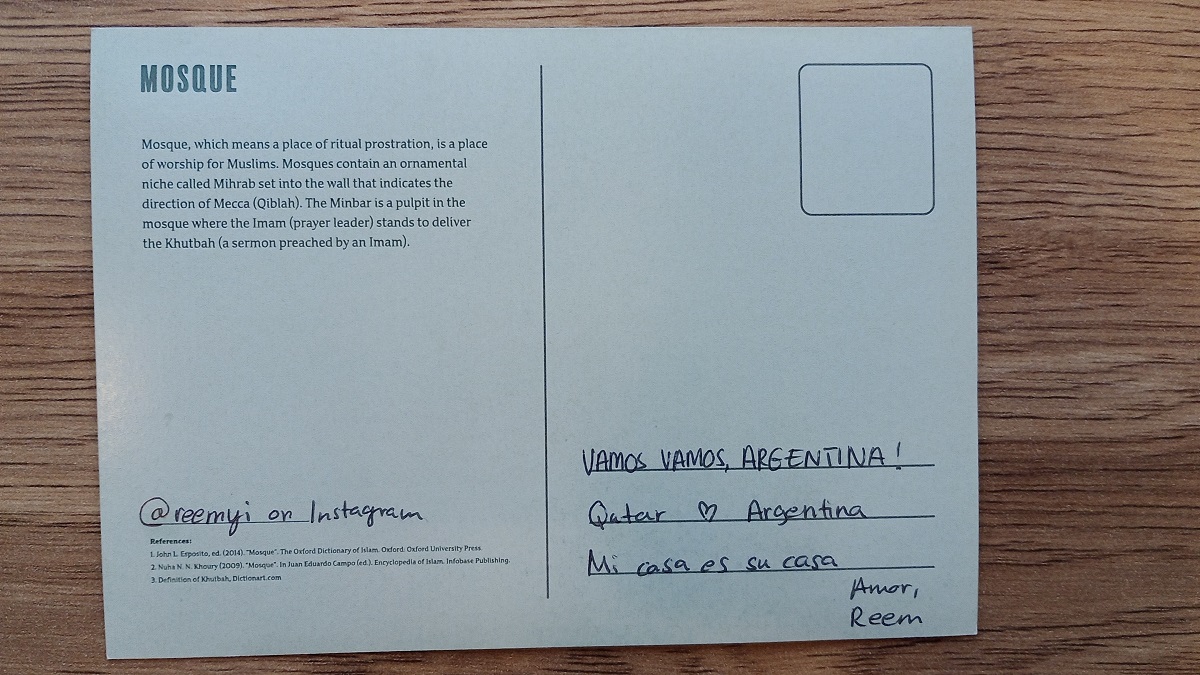 MOSQUE
Mosque, which means a place of ritual prostration, is a place
of worship for Muslims. Mosques contain an ornamental
niche called Mihrab set into the wall that indicates the
direction of Mecca (Qiblah). The Minbar is a pulpit in the
mosque where the Imam (prayer leader) stands to deliver
the Khutbah (a sermon preached by an Imam).
@reemyi on Instagram
References:
1. John L. Esposito, ed. (2014). "Mosque". The Oxford Dictionary of Islam. Oxford: Oxford University Press.
2. Nuha N. N. Khoury (2009). "Mosque". In Juan Eduardo Campo (ed.). Encyclopedia of Islam. Infobase Publishing.
3. Definition of Khutbah, Dictionart.com
VAMOS VAMOS, ARGENTINA!
Qatar ♡ Argentina
Mi casa es su casa
Amor,
Reem